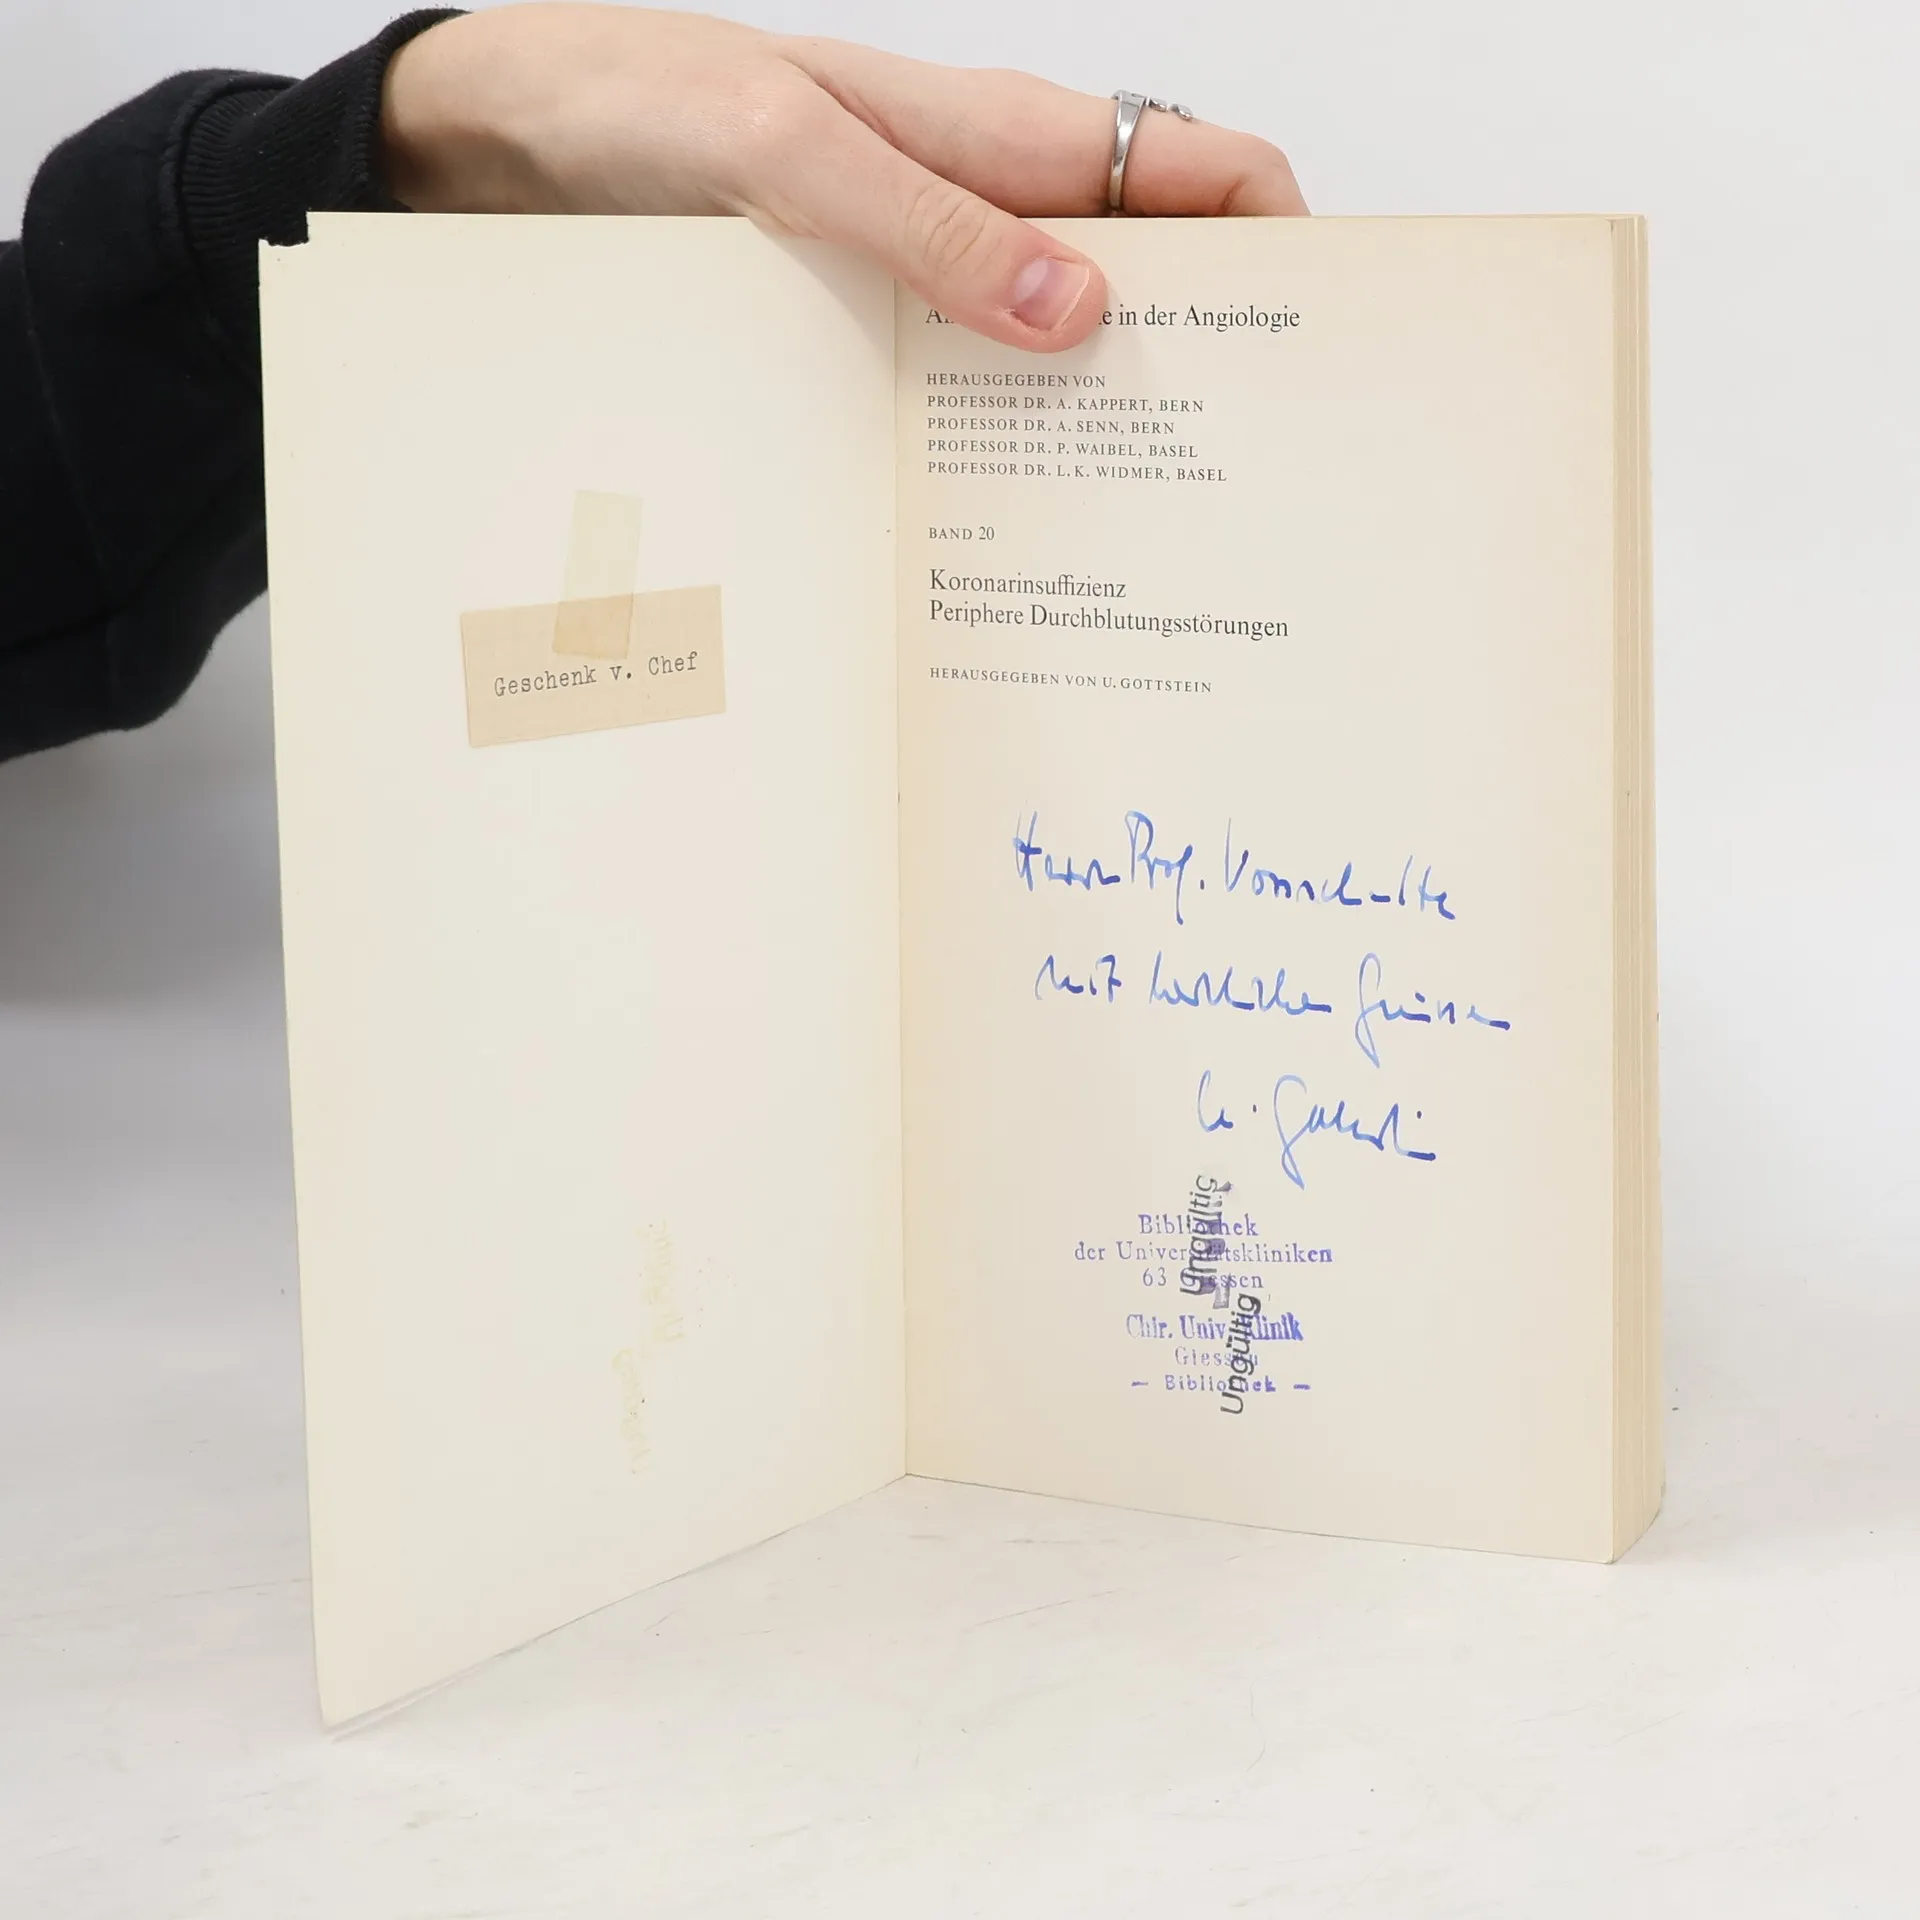 Geschenk v. Chef
in der Angiologie
HERAUSGEGEBEN VON
PROFESSOR DR. A. KAPPERT, BERN
PROFESSOR DR. A. SENN, BERN
PROFESSOR DR. P. WAIBEL, BASEL
PROFESSOR DR. L. K. WIDMER, BASEL
BAND 20
Koronarinsuffizienz
Periphere Durchblutungsstörungen
HERAUSGEGEBEN VON U. GOTTSTEIN
Herrn Prof. Vosschulte
mit herzlichen Grüssen
U. Gottstein
Bibliothek
der Universitätskliniken
63 Giessen
Ungültig
Chir. Univ. Klinik
Giessen
— Bibliothek —
Ungültig